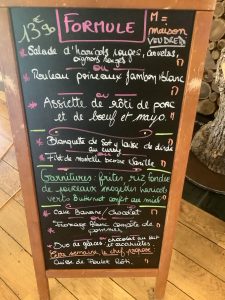 13€90
FORMULE
M = maison
VENDREDI
Salade d'haricots rouges, cervelas,
oignons rouges
ou
Rouleau poireaux jambon blanc
ou
Assiette de rôti de porc
et de boeuf et mayo.
Blanquette de
au curry
Filet de beurre Vanille
Garnitures: frites riz fondue
de poireaux haricots
verts Butternut confit au miel
Cake Banane/chocolat
Fromage blanc compotée de
pommes
ou
Duo de glaces: chocolat au lait
et cacahuètes.
Cette semaine le chef propose:
Cuisse de Poulet Rôti.